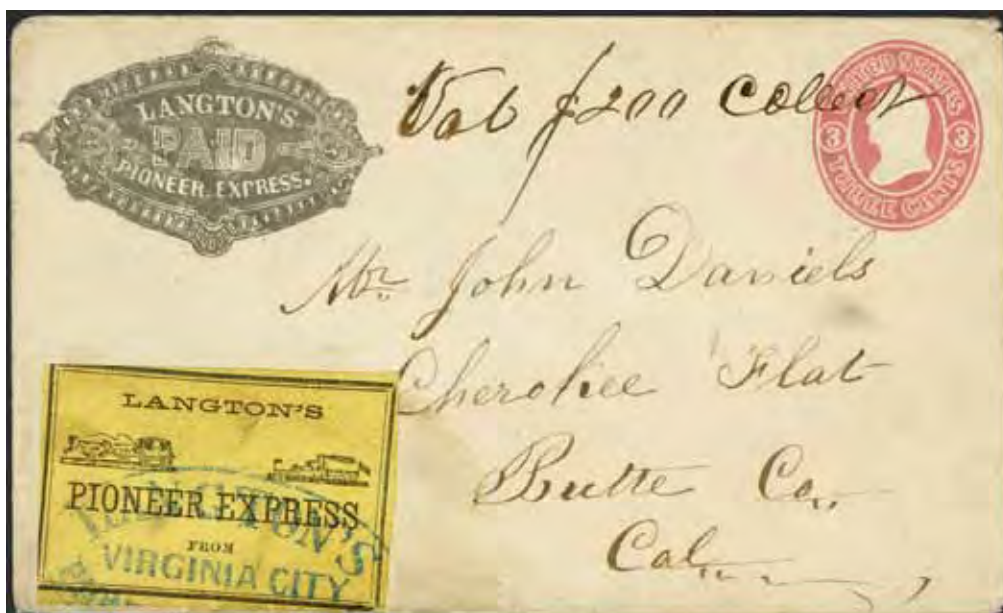 LANGTON'S
PAID
PIONEER EXPRESS.
Val $200 Collect
UNITED STATES
3 3
THREE CENTS
Mr. John Daniels
Cherokee Flat
Butte Co.
Cal
LANGTON'S
PIONEER EXPRESS
FROM
VIRGINIA CITY
LANGTON'S